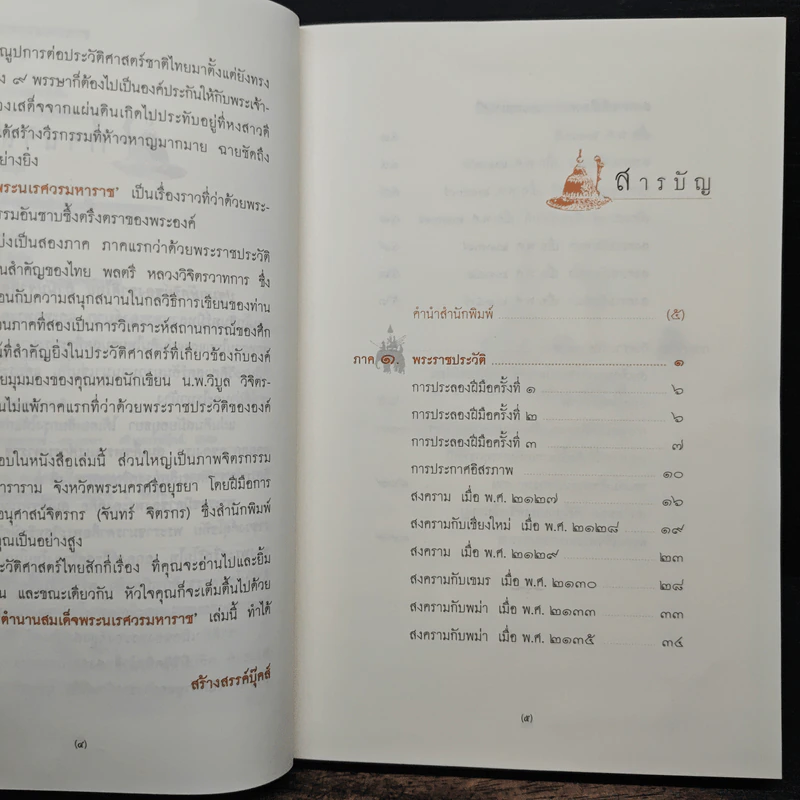 ณูปการต่อประวัติศาสตร์ชาติไทยมาตั้งแต่ยังทรง
ง ๙ พรรษาก็ต้องไปเป็นองค์ประกันให้กับพระเจ้า-
องเสด็จจากแผ่นดินเกิดไปประทับอยู่ที่หงสาวดี
ด้สร้างวีรกรรมที่ห้าวหาญมากมาย ฉายชัดถึง
ย่างยิ่ง
พระนเรศวรมหาราช' เป็นเรื่องราวที่ว่าด้วยพระ-
รรมอันซาบซึ้งตรึงตราของพระองค์
บ่งเป็นสองภาค ภาคแรกว่าด้วยพระราชประวัติ
นสำคัญของไทย พลตรี หลวงวิจิตรวาทการ ซึ่ง
อนกับความสนุกสนานในกลวิธีการเขียนของท่าน
วนภาคที่สองเป็นการวิเคราะห์สถานการณ์ของศึก
น์ที่สำคัญยิ่งในประวัติศาสตร์ที่เกี่ยวข้องกับองค์
ยมุมมองของคุณหมอนักเขียน น.พ.วิบูล วิจิตร-
นไม่แพ้ภาคแรกที่ว่าด้วยพระราชประวัติขององค์
อบในหนังสือเล่มนี้ ส่วนใหญ่เป็นภาพจิตรกรรม
าราราม จังหวัดพระนครศรีอยุธยา โดยฝีมือการ
อนุศาสน์จิตรกร (จันทร์ จิตรกร) ซึ่งสำนักพิมพ์
คุณเป็นอย่างสูง
ะวัติศาสตร์ไทยสักกี่เรื่อง ที่คุณจะอ่านไปและยิ้ม
น และขณะเดียวกัน หัวใจคุณก็จะเต็มตื้นไปด้วย
ตำนานสมเด็จพระนเรศวรมหาราช' เล่มนี้ ทำได้
สร้างสรรค์บุ๊คส์
(๔)
สารบัญ
คำนำสำนักพิมพ์ (๕)
ภาค ๑. พระราชประวัติ ๑
การประลองฝีมือครั้งที่ ๑ ๖
การประลองฝีมือครั้งที่ ๒ ๖
การประลองฝีมือครั้งที่ ๓ ๗
การประกาศอิสรภาพ ๑๐
สงคราม เมื่อ พ.ศ. ๒๑๒๗ ๑๖
สงครามกับเชียงใหม่ เมื่อ พ.ศ. ๒๑๒๘ ๑๙
สงคราม เมื่อ พ.ศ. ๒๑๒๙ ๒๓
สงครามกับเขมร เมื่อ พ.ศ. ๒๑๓๐ ๒๘
สงครามกับพม่า เมื่อ พ.ศ. ๒๑๓๓ ๓๓
สงครามกับพม่า เมื่อ พ.ศ. ๒๑๓๕ ๓๔
(๕)